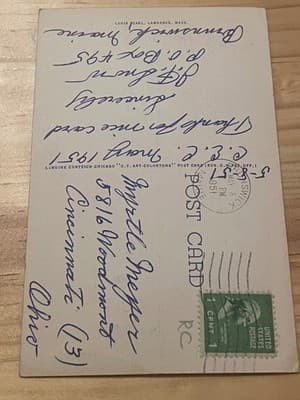 LOUIS PEARL, LAWRENCE, MASS.
5-8-51
C.E.C. May 1951
Thanks for nice card
Sincerely
P.O. Box 495
Brunswick, Maine
GENUINE CURTEICH-CHICAGO "C.T. ART-COLORTONE" POST CARD (REG. U.S. PAT. OFF.)
POST CARD
MAY 8
PM
1951
UNITED STATES POSTAGE
1 CENT 1
Myrtle Meyer
5816 Woodmont
Cincinnati (13)
Ohio
RC